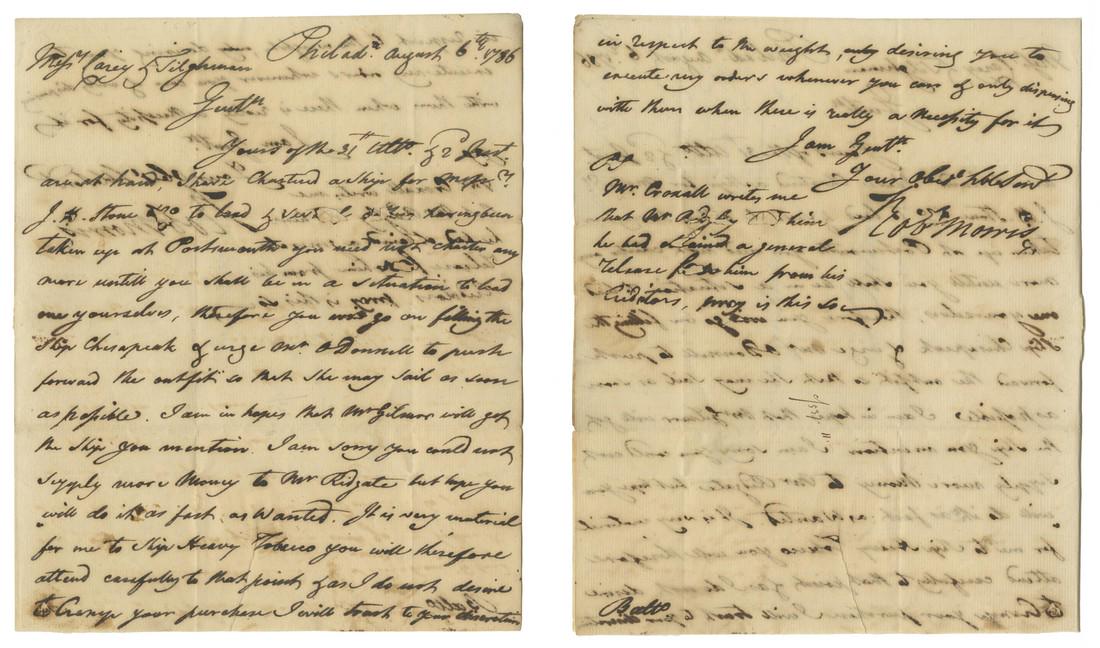 Philad.ª August 6th. 1786
Messrs Carey & Tilghman
Gentn
Yours of the 31th Ulto. & 2 Inst.
are at hand, I have Chartered a Ship for Messrs.
J. H. Stone & Co to load & several others having been
taken up at Portsmouth you need not charter any
more untill you shall be in a situation to load
one yourselves, therefore you will go on filling the
Ship Chesapeak & urge Mr. O Donnell to push
forward the outfit so that she may sail as soon
as possible. I am in hopes that Mr Gilmor will get
the Ship you mention. I am sorry you could not
supply more Money to Mr Ridgate but hope you
will do it as fast as Wanted. It is very material
for me to Ship Heavy Tobacco you will therefore
attend carefully to that point & as I do not desire
to Cramp your purchase I will trust to your discretion
in respect to the weight, only desiring you to
execute my orders whenever you can & only dispensing
with them when there is really a Necessity for it
I am Gentn.
Your Obedt hble Servt
Robt Morris
PS
Mr. Croxall writes me
that Mr Ridgely told him
he had obtained a general
release for him from his
Creditors, pray is this so
Balto